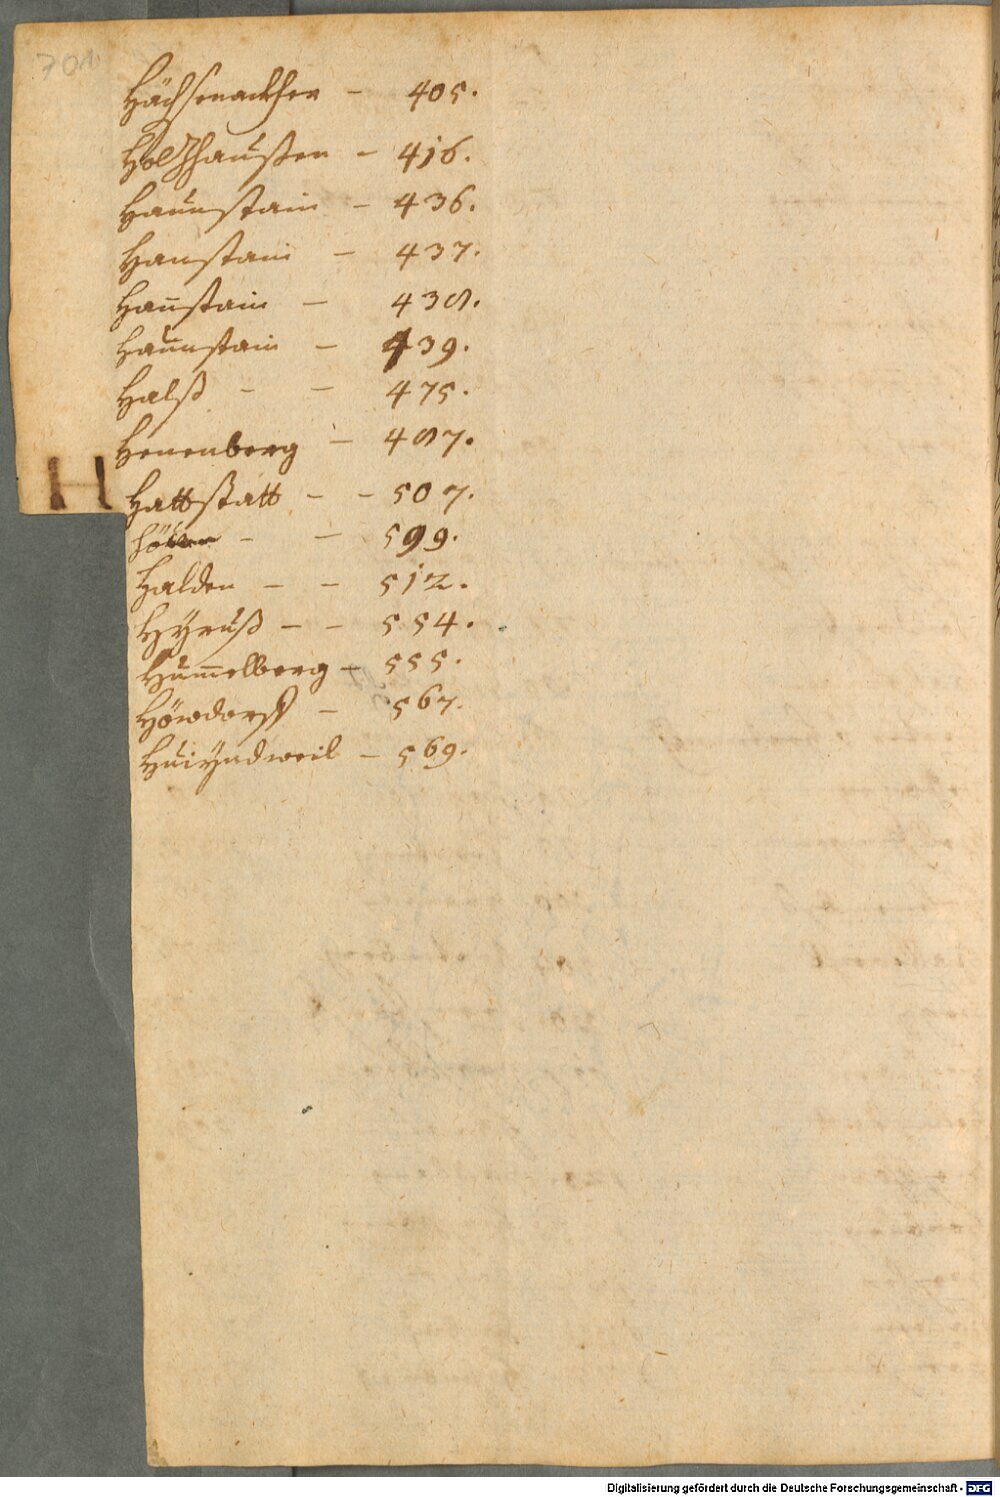 701
Hächsenackher - 405.
Holzhaußen - 416.
Haunstain - 436.
Hanstain - 437.
Haunstain - 438.
Haunstain - 439.
Halß - - 475.
Henenberg - 487.
H
Hattstatt - - 507.
- - 599.
Halden - - 512.
Hÿruß - - 554.
Hum̄elberg - 555.
Höwdorff - 567.
- 569.
Digitalisierung gefördert durch die Deutsche Forschungsgemeinschaft - DFG